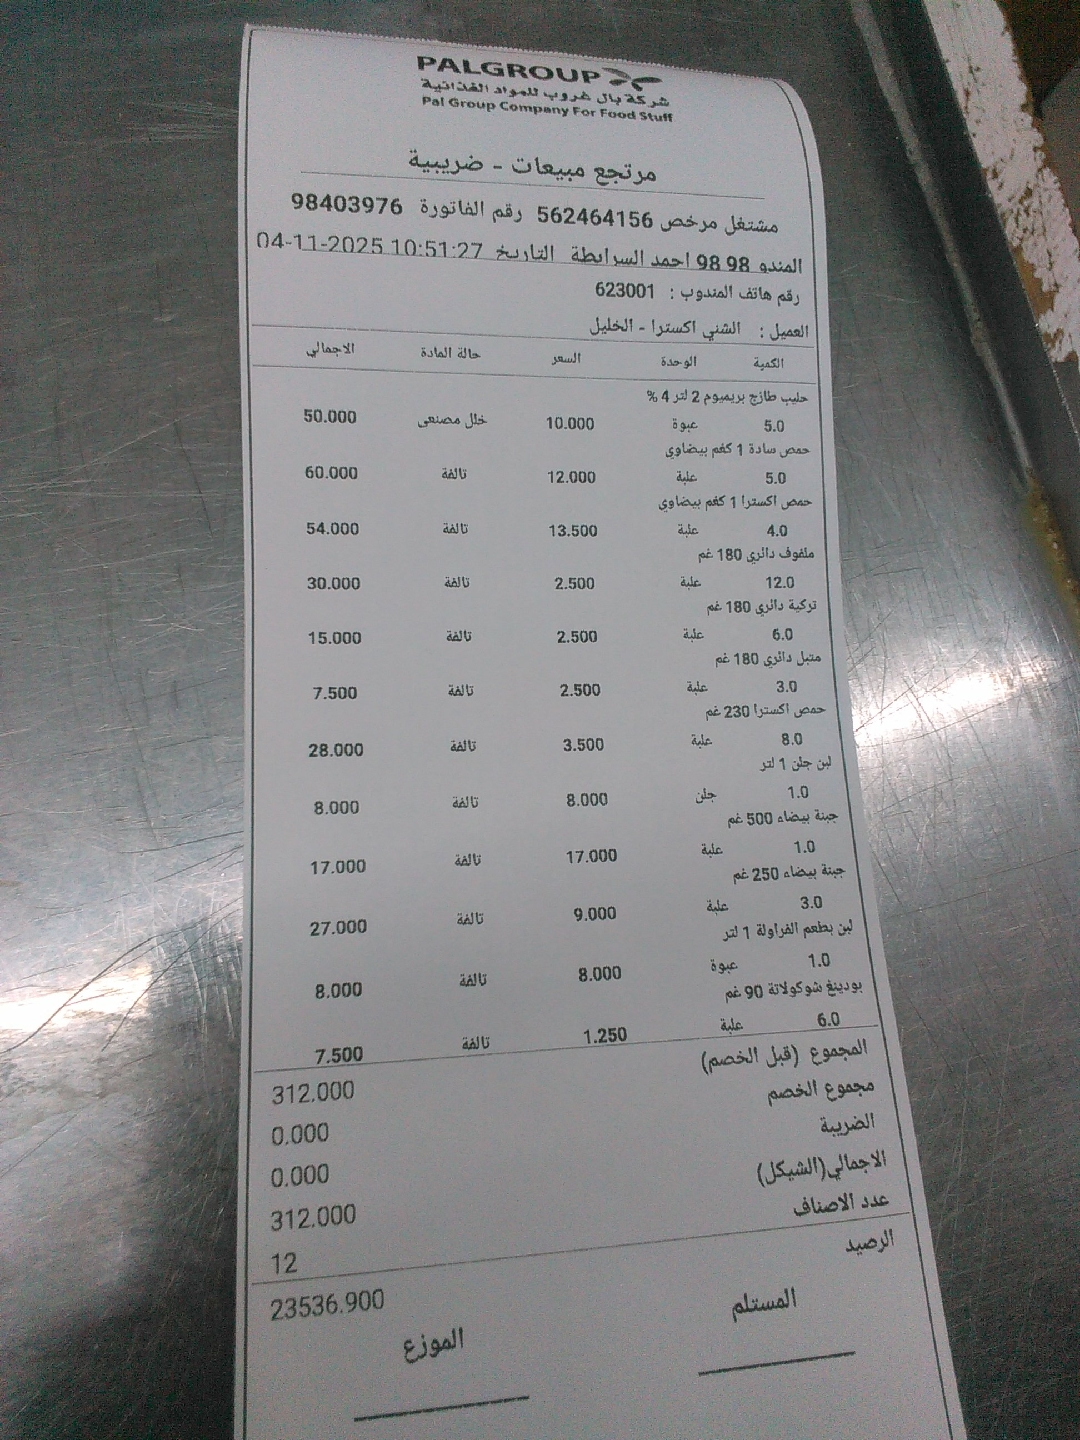 PALGROUP
شركة بال غروب للمواد الغذائية
Pal Group Company For Food Stuff
مرتجع مبيعات - ضريبية
مشتغل مرخص 562464156 رقم الفاتورة 98403976
المندو 98 98 احمد السرابطة التاريخ 04-11-2025 10:51:27
رقم هاتف المندوب : 623001
العميل : الشني اكسترا - الخليل
الكمية الوحدة السعر حالة المادة الاجمالي
حليب طازج بريميوم 2 لتر 4 %
5.0 عبوة 10.000 خلل مصنعى 50.000
حمص سادة 1 كغم بيضاوي
5.0 علبة 12.000 تالفة 60.000
حمص اكسترا 1 كغم بيضاوي
4.0 علبة 13.500 تالفة 54.000
ملفوف دائري 180 غم
12.0 علبة 2.500 تالفة 30.000
تركية دائري 180 غم
6.0 علبة 2.500 تالفة 15.000
متبل دائري 180 غم
3.0 علبة 2.500 تالفة 7.500
حمص اكسترا 230 غم
8.0 علبة 3.500 تالفة 28.000
لبن جلن 1 لتر
1.0 جلن 8.000 تالفة 8.000
جبنة بيضاء 500 غم
1.0 علبة 17.000 تالفة 17.000
جبنة بيضاء 250 غم
3.0 علبة 9.000 تالفة 27.000
لبن بطعم الفراولة 1 لتر
1.0 عبوة 8.000 تالفة 8.000
بودينغ شوكولاتة 90 غم
6.0 علبة 1.250 تالفة 7.500
المجموع (قبل الخصم) 312.000
مجموع الخصم 0.000
الضريبة 0.000
الاجمالي(الشيكل) 312.000
عدد الاصناف 12
الرصيد 23536.900
المستلم الموزع